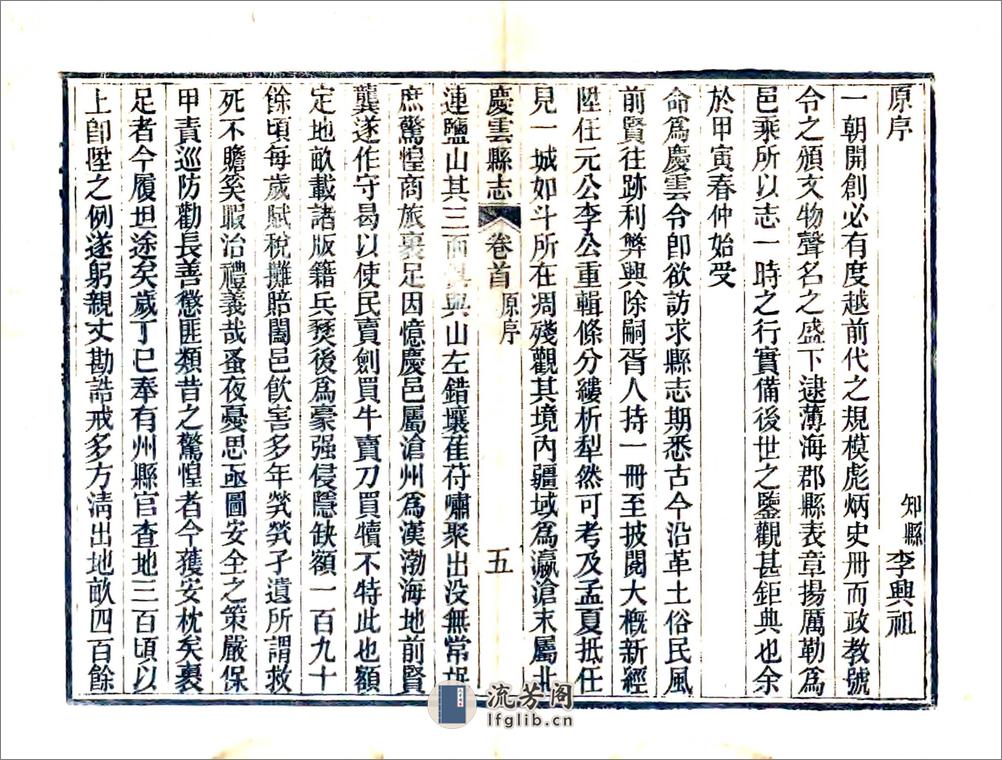 原序
知縣李興祖
一朝開創必有度越前代之規模彪炳史冊而政教號
令之頒文物聲名之盛下逮薄海郡縣表章揚厲勒爲
邑乘所以志一時之行實備後世之鑒觀甚鉅典也余
於甲寅春仲始受
命爲慶雲令卽欲訪求縣志期悉古今沿革土俗民風
前賢往跡利弊興除嗣胥人持一冊至披閱大槪新經
陞任元公李公重輯條分縷析犁然可考及孟夏抵任
見一城如斗所在凋殘觀其境內疆域爲瀛滄末屬北
慶雲縣志
卷首
原序
五
連鹽山其三面與山左錯壤萑苻嘯聚出没無常
庶驚惶商旅裹足因憶慶邑屬滄州爲漢渤海地前賢
龔遂作守曷以使民賣劍買牛賣刀買犢不特此也額
定地畝載諸版籍兵燹後爲豪强侵隱缺額一百九十
餘頃每歲賦稅攤賠闔邑飮害多年煢煢孑遺所謂救
死不贍奚暇治禮義哉蚤夜憂思亟圖安全之策嚴保
甲責巡防勸長善懲匪類昔之驚惶者今獲安枕矣裹
足者今履坦途矣歲丁巳奉有州縣官查地三百頃以
上卽陞之例遂躬親丈勘誥戒多方淸出地畝四百餘
流芳阁
lfglib.cn